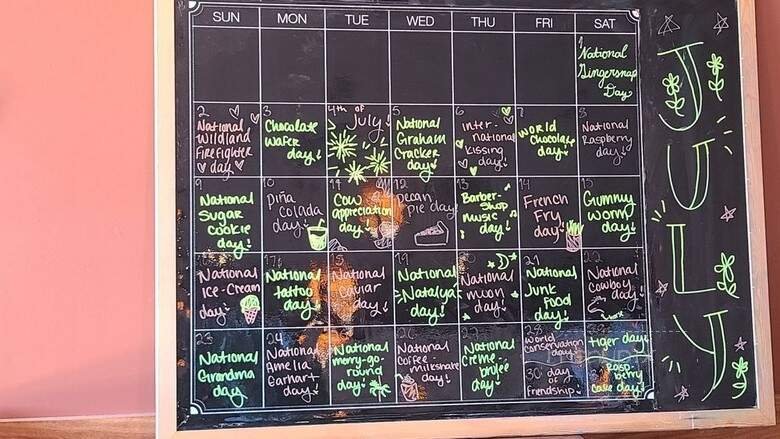 SUN MON TUE WED THU FRI SAT
1
National
Gingersnap
Day
2
National
Wildland
Firefighter
day
3
Chocolate
wafer
day
4th of
July
5
National
Graham
Cracker
day
6
Inter-
national
kissing
day
7
World
Chocolate
day
8
National
Raspberry
day
9
National
Sugar
Cookie
day
10
Piña
colada
day
11
Cow
appreciation
day
12
Pecan
Pie day
13
Barber-
shop
music
day
14
French
Fry
day
15
Gummy
worm
day
16
National
Ice-Cream
day
17
National
tattoo
day
18
National
caviar
day
19
National
Natalya
day
20
National
moon
day
21
National
Junk
Food
day
22
National
Cowboy
day
23
National
Grandma
day
24
National
Amelia
Earhart
day
25
National
merry-go-
round
day
26
National
Coffee
milkshake
day
27
National
Crème
brulee
day
28
World
Conservation
day
30 day
of
friendship
29
tiger day
31 Rasp
berry
Cake day
JULY